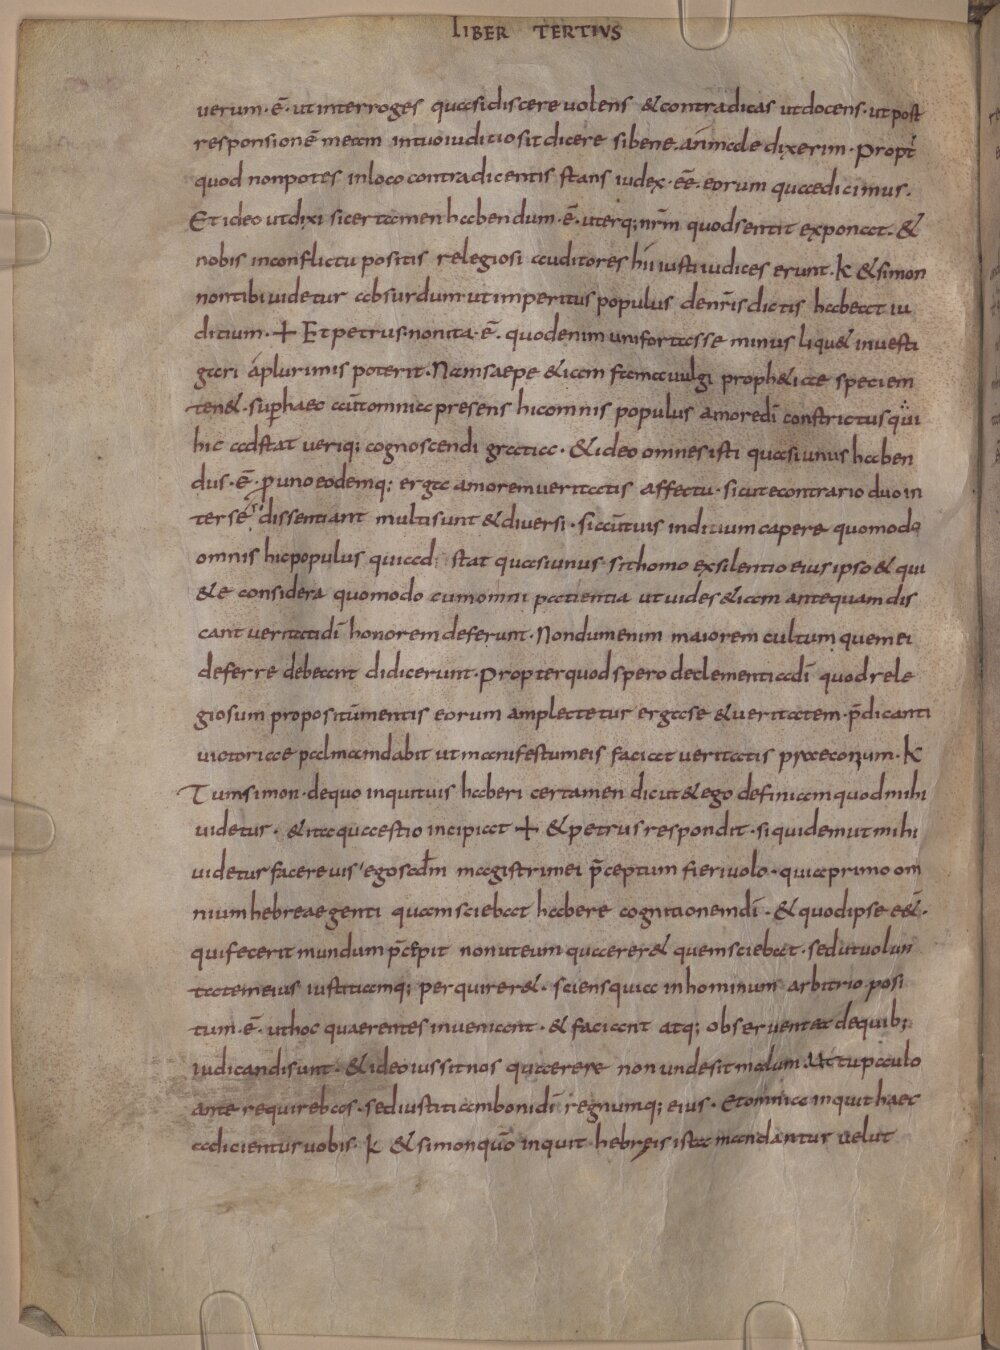 LIBER TERTIVS
uerum · ē · ut interroges quasi discere uolens & contradicas ut docens · ut post
responsionē meam in tuo iuditio sit dicere si bene · an male dixerim · Propt̄
quod non potes in loco contradicentis stans iudex · ēē · eorum quae dicimus ·
Et ideo ut dixi si certamen habendum · ē · uterq; nr̄m quod sentit exponat · &
nobis in conflictu positis relegiosi auditores hii iusti iudices erunt · K & simon
non tibi uidetur absurdum ut imperitus populus de nr̄is dictis habeat iu
ditium · + Et petrus · non ita · ē · quod enim uni fortasse minus liqu& inuesti
gari a plurimis poterit · Nam saepe &iam fama uulgi proph&icae speciem
ten& · sup haec aūt omnia presens hic omnis populus amore dī constrictus qui
hic adstat ueriq; cognoscendi gratia · & ideo omnes isti quasi unus haben
dus · ē · p uno eodemq; erga amorem ueritatis affectu · sicut e contrario duo in
ter se si dissentiant multi sunt & diuersi · si aūt uis inditium capere quomodo
omnis hic populus qui ad stat quasi unus sit homo ex silentio eius ipso & qui
&e considera quomodo cum omni patientia ut uides &iam antequam dis
cant ueritati dī honorem deferunt · Nondum enim maiorem cultum quem ei
deferre debeant didicerunt · Propter quod spero de clementia dī quod rele
giosum propositūmentis eorum amplectetur erga se & ueritatem · p̄dicanti
uictoriae palmam dabit ut manifestum eis faciat ueritatis praeconum · K
Tum simon · de quo inquit uis haberi certamen dic ut & ego definiam quod mihi
uidetur · & ita quaestio incipiat + & petrus respondit · siquidem ut mihi
uidetur facere uis ego scdm magistri mei p̄ceptum fieri uolo · quia primo om
nium hebreae genti quam sciebat habere cognitionem dī · & quod ipse e& ·
qui fecerit mundum p̄cepit non ut eum quaerer& quem sciebat · sed ut uolun
tatem eius iustitiamq; perquirer& · sciens quia in hominum arbitrio posi
tum · ē · ut hoc quaerentes inueniant · & faciant atq; obseruent ea de quib;
iudicandi sunt · & ideo iussit nos quaerere non unde sit malum · ut tu paulo
ante requirebas · sed iustitiam boni dī regnumq; eius · et omnia inquit haec
adicientur uobis · K & simon quō inquit hebreis ista mandantur uelut